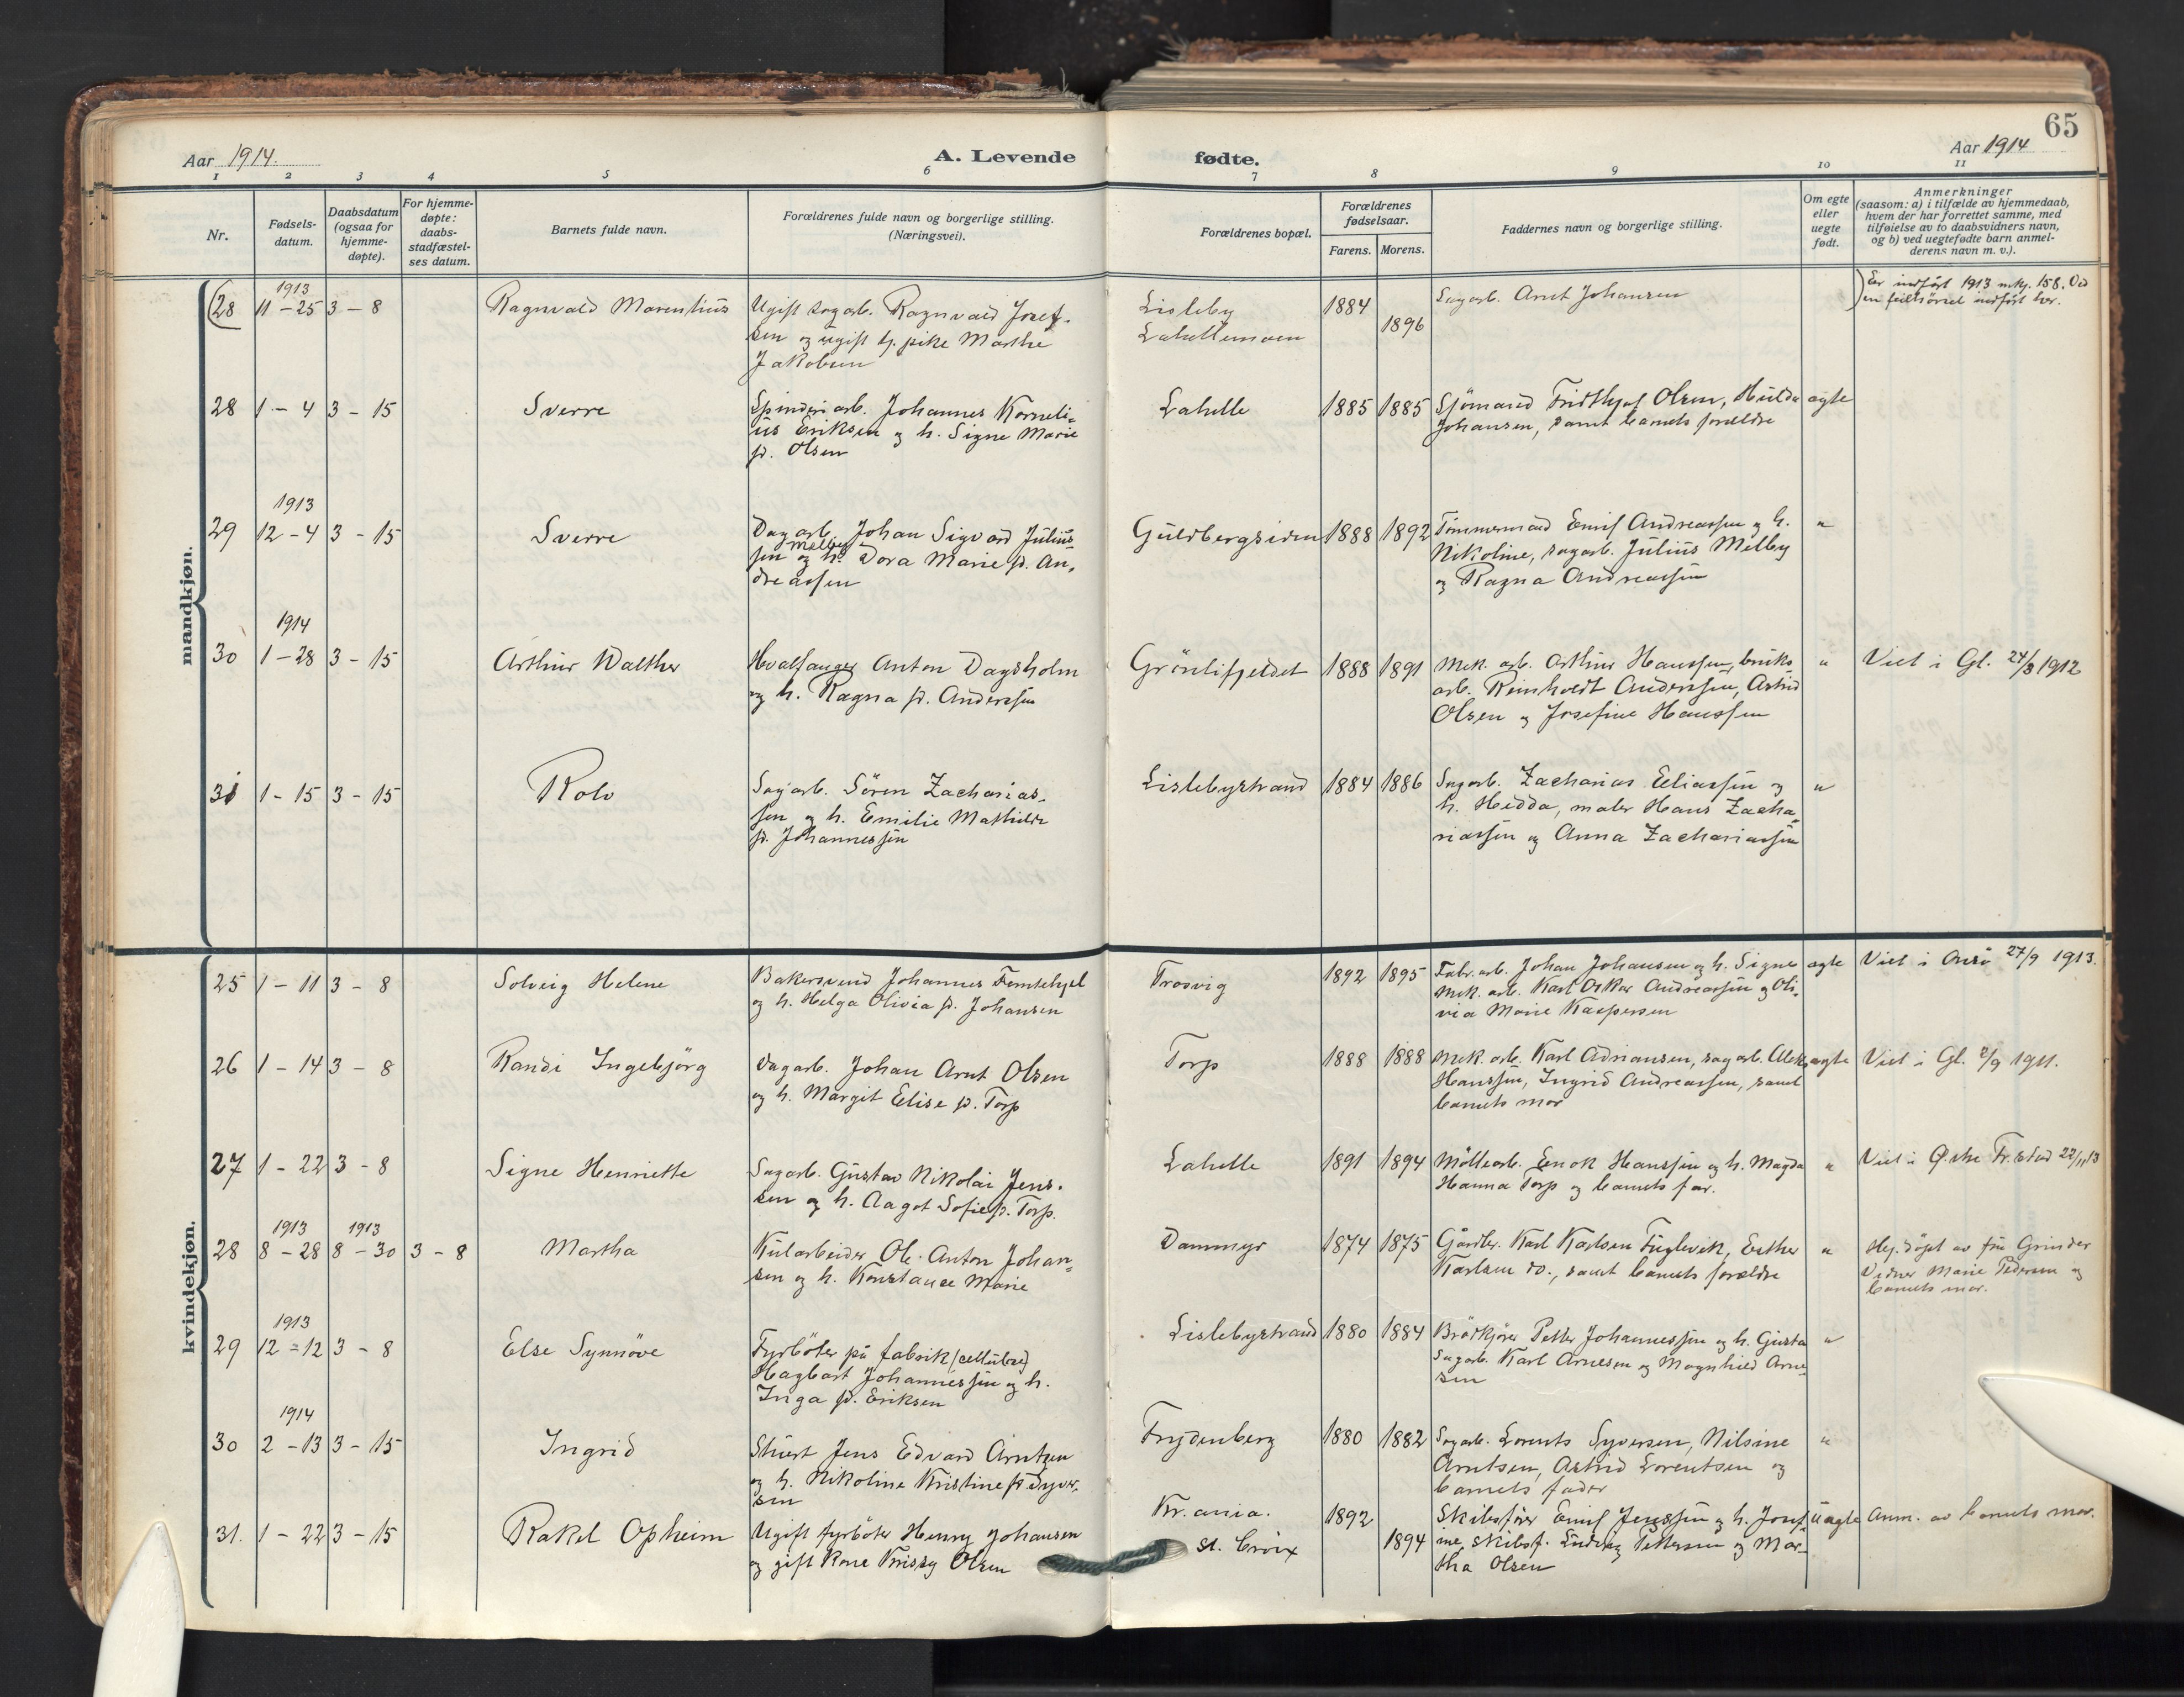 65
Aar 1914.
A. Levende
fødte.
Aar 1914
1 2 3 4 5 6 7 8 9 10 11
Nr.
Fødsels-
datum.
Daabsdatum
(ogsaa for
hjemme-
døpte).
For hjemme-
døpte:
daabs-
stadfæstel-
ses datum.
Barnets fulde navn.
Forældrenes fulde navn og borgerlige stilling.
(Næringsvei).
Forældrenes bopæl.
Forældrenes
fødselsaar.
Farens. Morens.
Faddernes navn og borgerlige stilling.
Om egte
eller
uegte
født.
Anmerkninger
(saasom: a) i tilfælde av hjemmedaab,
hvem der har forrettet samme, med
tilføielse av to daabsvidners navn,
og b) ved uegtefødte barn anmel-
derens navn m. v.).
mandkjøn.
(28
1913
11 - 25 3 - 8
Ragnvald Marentius
Ugift sagarb. Ragnvald Josef-
sen og ugift tj. pike Marthe
Jakobsen
Lisleby
Lahellemoen
1884
1896
Sagarb. Arnt Johansen
Er indført 1913 mkj. 158. Ved
en feiltørsel indført her.
28 1 - 4 3 - 15
Sverre
Spinderiarb. Johannes Korneli-
us Eriksen og h. Signe Marie
f. Olsen
Lahelle
1885 1885
Sjömand Fridthjof Olsen, Hulda
Johansen, samt barnets forældre
ægte
29
1913
12 - 4 3 - 15
Sverre
Dagarb. Johan Sigvard Julius-
sen Melby og h. Dora Marie f. An-
dreassen
Guldbergsiden
1888 1892
Tömmermand Emil Andreassen og h.
Nikoline, sagarb. Julius Melby
og Ragna Andreassen
"
30
1914
1 - 28 3 - 15
Arthur Walther
Hvalfanger Anton Dagsholm
og h. Ragna f. Anderssen
Grönlifjeldet
1888 1891
Mek. arb. Arthur Hanssen, bruks
arb. Reinholdt Anderssen, Astrid
Olsen og Josefine Hanssen
"
Viet i Gl. 24/3 1912
31 1 - 15 3 - 15
Rolv
Sagarb. Sören Zacharias-
sen og h. Emilie Mathilde
f. Johannessen
Lislebystrand
1884 1886
Sagarb. Zacharias Eliassen og
h. Hedda, maler Hans Zacha-
riassen og Anna Zachariassen
"
kvindekjøn.
25 1 - 11 3 - 8
Solveig Helene
Bakersvend Johannes Femtehjel
og h. Helga Olivia f. Johansen
Trosvig
1892 1895
Fabr. arb. Johan Johansen og h. Signe
Mek. arb. Karl Oskar Andreassen og Oli-
via Marie Kaspersen
ægte
Viet i Onsö 27/9 1913.
26 1 - 14 3 - 8
Randi Ingebjörg
Dagarb. Johan Arnt Olsen
og h. Margit Elise f. Torp
Torp
1888 1888
Mek. arb. Karl Adriansen, sagarb. Aleks
Hanssen, Ingrid Andreassen, samt
barnets mor
ægte
Viet i Gl. 2/9 1911.
27 1 - 22 3 - 8
Signe Henriette
Sagarb. Gustav Nikolai Jens-
sen og h. Aagot Sofie f. Torp.
Lahelle
1891 1894
Möllearb. Enok Hanssen og h. Magda
Hanna Torp og barnets far.
"
Viet i Ø.stre Fr.stad 22/11 13
28
1913 1913
8 - 28 8 - 30 3 - 8
Martha
Kularbeider Ole Anton Johan-
sen og h. Konstance Marie
Dammyr
1874 1875
Gårdbr. Karl Karlsen Fuglevik, Esther
Karlsen do., samt barnets forældre
"
Hj. döpt av fru Grinder
Vidner Marie Pedersen og
barnets mor.
29
1913
12 - 12 3 - 8
Else Synnöve
Fyrböter på fabrik (cellulose)
Hagbart Johannessen og h.
Inga f. Eriksen
Lislebystrand
1880 1884
Brödkjörer Petter Johannessen og h. Gusta
Sagarb. Karl Arnesen og Magnhild Arne-
sen
"
30
1914
2 - 13 3 - 15
Ingrid
Stuert Jens Edvard Arntzen
og h. Nikoline Kristine f. Syver-
sen
Frydenberg
1880 1882
Sagarb. Lorents Syversen, Nilsine
Arntsen, Astrid Lorentsen og
barnets fader
"
31. 1 - 22 3 - 15
Rakel Opheim
Ugift fyrböter Henry Johansen
og gift kone Krissy Olsen
Kr.ania.
St. Croix
1892
1894
Skibsförer Emil Jenssen og h. Josef-
ine, skibsf. Ludvig Pettersen og Mar-
tha Olsen
uægte
Anm. av barnets mor.